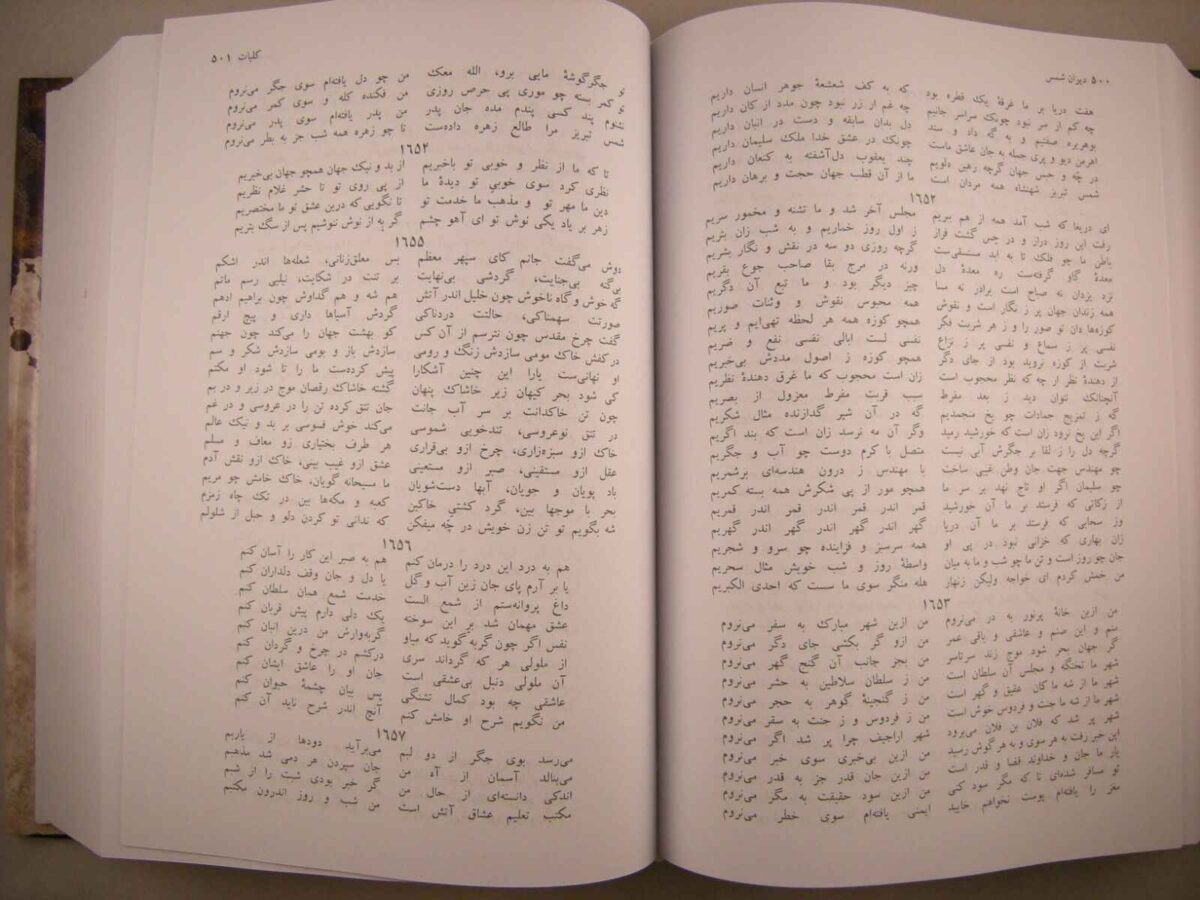 ۵۰۰ دیوان شمس
هفت دریا بر ما غرقهٔ یک قطره بود که به کف شعشعهٔ جوهر انسان داریم
چه کم از سر نبود چونک سراسر جانیم چه غم از زر نبود چون مدد از کان داریم
بوهریره صفتیم و به گه داد و ستد دل بدان سابقه و دست در انبان داریم
اهرمن دیو و پری جمله به جان عاشق ماست چونک در عشق خدا ملک سلیمان داریم
در چه و حبس جهان گرچه رهین دلویم چند یعقوب دل‌آشفته به کنعان داریم
شمس تبریز شهنشاه همه مردان است ما از آن قطب جهان حجت و برهان داریم
١٦٥٢
ای دریغا که شب آمد همه از هم ببریم مجلس آخر شد و ما تشنه و مخمور سریم
رفت این روز دراز و در حس گشت فراز ز اول روز خماریم و به شب زان بتریم
باطن ما چو فلک تا به ابد مستسقی‌ست گرچه روزی دو سه در نقش و نگار بشریم
معدهٔ گاو گرفته‌ست ره معدهٔ دل ورنه در مرج بقا صاحب جوع بقریم
نزد یزدان نه صباح است برادر نه مسا چیز دیگر بود و ما تبع آن دگریم
همه زندان جهان پر ز نگار است و نقوش همه محبوس نقوش و وثنات صوریم
کوزه‌ها دان تو صور را و ز هر شربت فکر همچو کوزه همه هر لحظه تهی‌ایم و پریم
نفسی پر ز سماع و نفسی پر ز نزاع نفسی لست ابالی نفسی نفع و ضریم
شربت از کوزه نروید بود از جای دگر همچو کوزه ز اصول مددش بی‌خبریم
از دهندهٔ نظر ار چه که نظر محجوب است زان است محجوب که ما غرق دهندهٔ نظریم
آنچنانک نتوان دید ز بعد مفرط سبب قربت مفرط معزول از بصریم
گه ز تمزیج جمادات چو یخ منجمدیم گه در آن شیر گدازنده مثال شکریم
اگر این یخ نرود زان است که خورشید رمید وگر آن مه نرسد زان است که بند اگریم
گرچه دل را ز لقا بر جگرش آبی نیست متصل با کرم دوست چو آب و جگریم
چو مهندس جهت جان وطن غیبی ساخت با مهندس ز درون هندسه‌ای برشمریم
چو سلیمان اگر او تاج نهد بر سر ما همچو مور از پی شکرش همه بسته کمریم
از زکاتی که فرستد بر ما آن خورشید قمر اندر قمر اندر قمر اندر قمریم
وز سحابی که فرستد بر ما آن دریا گهر اندر گهر اندر گهر اندر گهریم
زان بهاری که خزانی نبود در پی او همه سرسبز و فزاینده چو سرو و شجریم
جان چو روز است و تن ما چو شب و ما به میان واسطهٔ روز و شب خویش مثال سحریم
من خمش کردم ای خواجه ولیکن زنهار هله منگر سوی ما سست که احدی الکبریم
١٦٥٣
من ازین خانهٔ پرنور به در می‌نروم من ازین شهر مبارک به سفر می‌نروم
منم و این صنم و عاشقی و باقی عمر من ازو گر بکشی جای دگر می‌نروم
گر جهان بحر شود موج زند سرتاسر من بجز جانب آن گنج گهر می‌نروم
شهر ما تختگه و مجلس آن سلطان است من ز سلطان سلاطین به حشر می‌نروم
شهر ما از شه ما کان عقیق و گهر است من ز گنجینهٔ گوهر به حجر می‌نروم
شهر ما از شه ما جنت و فردوس خوش است من ز فردوس و ز جنت به سقر می‌نروم
شهر پر شد که فلان بن فلان می‌برود شهر اراجیف چرا پر شد اگر می‌نروم
این خبر رفت به هر سوی و به هر گوش رسید من ازین بی‌خبری سوی خبر می‌نروم
یار ما جان و خداوند قضا و قدر است من ازین جان قدر جز به قدر می‌نروم
تو مسافر شده‌ای تا که مگر سود کنی من ازین سود حقیقت به مگر می‌نروم
مغز را یافته‌ام پوست نخواهم خایید ایمنی یافته‌ام سوی خطر می‌نروم
کلیات ۵۰۱
تو جگرگوشهٔ مایی برو، الله معک من چو دل یافته‌ام سوی جگر می‌نروم
تو کمر بسته چو موری پی حرص روزی من فکنده کله و سوی کمر می‌نروم
نشنوم پند کسی پندم مده جان پدر من پدر یافته‌ام سوی پدر می‌نروم
شمس تبریز مرا طالع زهره داده‌ست تا چو زهره همه شب جز به بطر می‌نروم
١٦٥٤
تا که ما از نظر و خوبی تو باخبریم از بد و نیک جهان همچو جهان بی‌خبریم
نظری کرد سوی خوبی تو دیدهٔ ما از پی روی تو تا حشر غلام نظریم
دین ما مهر تو و مذهب ما خدمت تو تا نگویی که درین عشق تو ما مختصریم
زهر بر یاد یکی نوش تو ای آهو چشم گر به از نوش ننوشیم پس از سگ بتریم
١٦٥٥
دوش می‌گفت جانم کای سپهر معظم بس معلق‌زنانی، شعله‌ها اندر اشکم
بی‌گنه بی‌جنایت، گردشی بی‌نهایت بر تنت در شکایت، نیلیی رسم ماتم
گه خوش و گاه ناخوش چون خلیل اندر آتش هم شه و هم گداوش چون براهیم ادهم
صورتت سهمناکی، حالتت دردناکی گردش آسیاها داری و پیچ ارقم
گفت چرخ مقدس چون نترسم از آن کس کو بهشت جهان را می‌کند چون جهنم
در کفش خاک مومی سازدش زنگ و رومی سازدش باز و بومی سازدش شکر و سم
او نهانی‌ست یارا این چنین آشکارا پیش کرده‌ست ما را تا شود او مکتم
کی شود بحر کیهان زیر خاشاک پنهان گشته خاشاک رقصان موج در زیر و در بم
چون تن خاکدانت بر سر آب جانت جان تتق کرده تن را در عروسی و در غم
در تتق نوعروسی، تندخویی شموسی می‌کند خوش فسوسی بر بد و نیک عالم
خاک ازو سبزه‌زاری، چرخ ازو بی‌قراری هر طرف بختیاری زو معاف و مسلم
عقل ازو مستقینی، صبر ازو مستعینی عشق ازو غیب بینی، خاک ازو نقش آدم
باد پویان و جویان، آبها دست‌شویان ما مسیحانه گویان، خاک خامش چو مریم
بحر با موجها بین، گرد کشتی خاکین کعبه و مکه‌ها بین در تک چاه زمزم
شه بگویم تو تن زن خویش در چه میفکن که ندانی تو کردن دلو و حبل از شلولم
١٦٥٦
هم به درد این درد را درمان کنم هم به صبر این کار را آسان کنم
یا بر آرم پای جان زین آب و گل یا دل و جان وقف دلداران کنم
داغ پروانه‌ستم از شمع الست خدمت شمع همان سلطان کنم
عشق مهمان شد بر این سوخته یک دلی دارم پیش قربان کنم
نفس اگر چون گربه گوید که میاو گربه‌وارش من درین انبان کنم
از ملولی هر که گرداند سری درکشم در چرخ و گردان کنم
آن ملولی دنبل بی‌عشقی است جان او را عاشق ایشان کنم
عاشقی چه بود کمال تشنگی پس بیان چشمهٔ حیوان کنم
من نگویم شرح او خامش کنم آنچ اندر شرح ناید آن کنم
١٦٥٧
می‌رسد بوی جگر از دو لبم می‌برآید دودها از یاربم
می‌بنالد آسمان از آه من جان سپردن هر دمی شد مذهبم
اندکی دانسته‌ای از حال من گر خبر بودی شبت را از شبم
مکتب تعلیم عشاق آتش است من شب و روز اندرون مکتبم